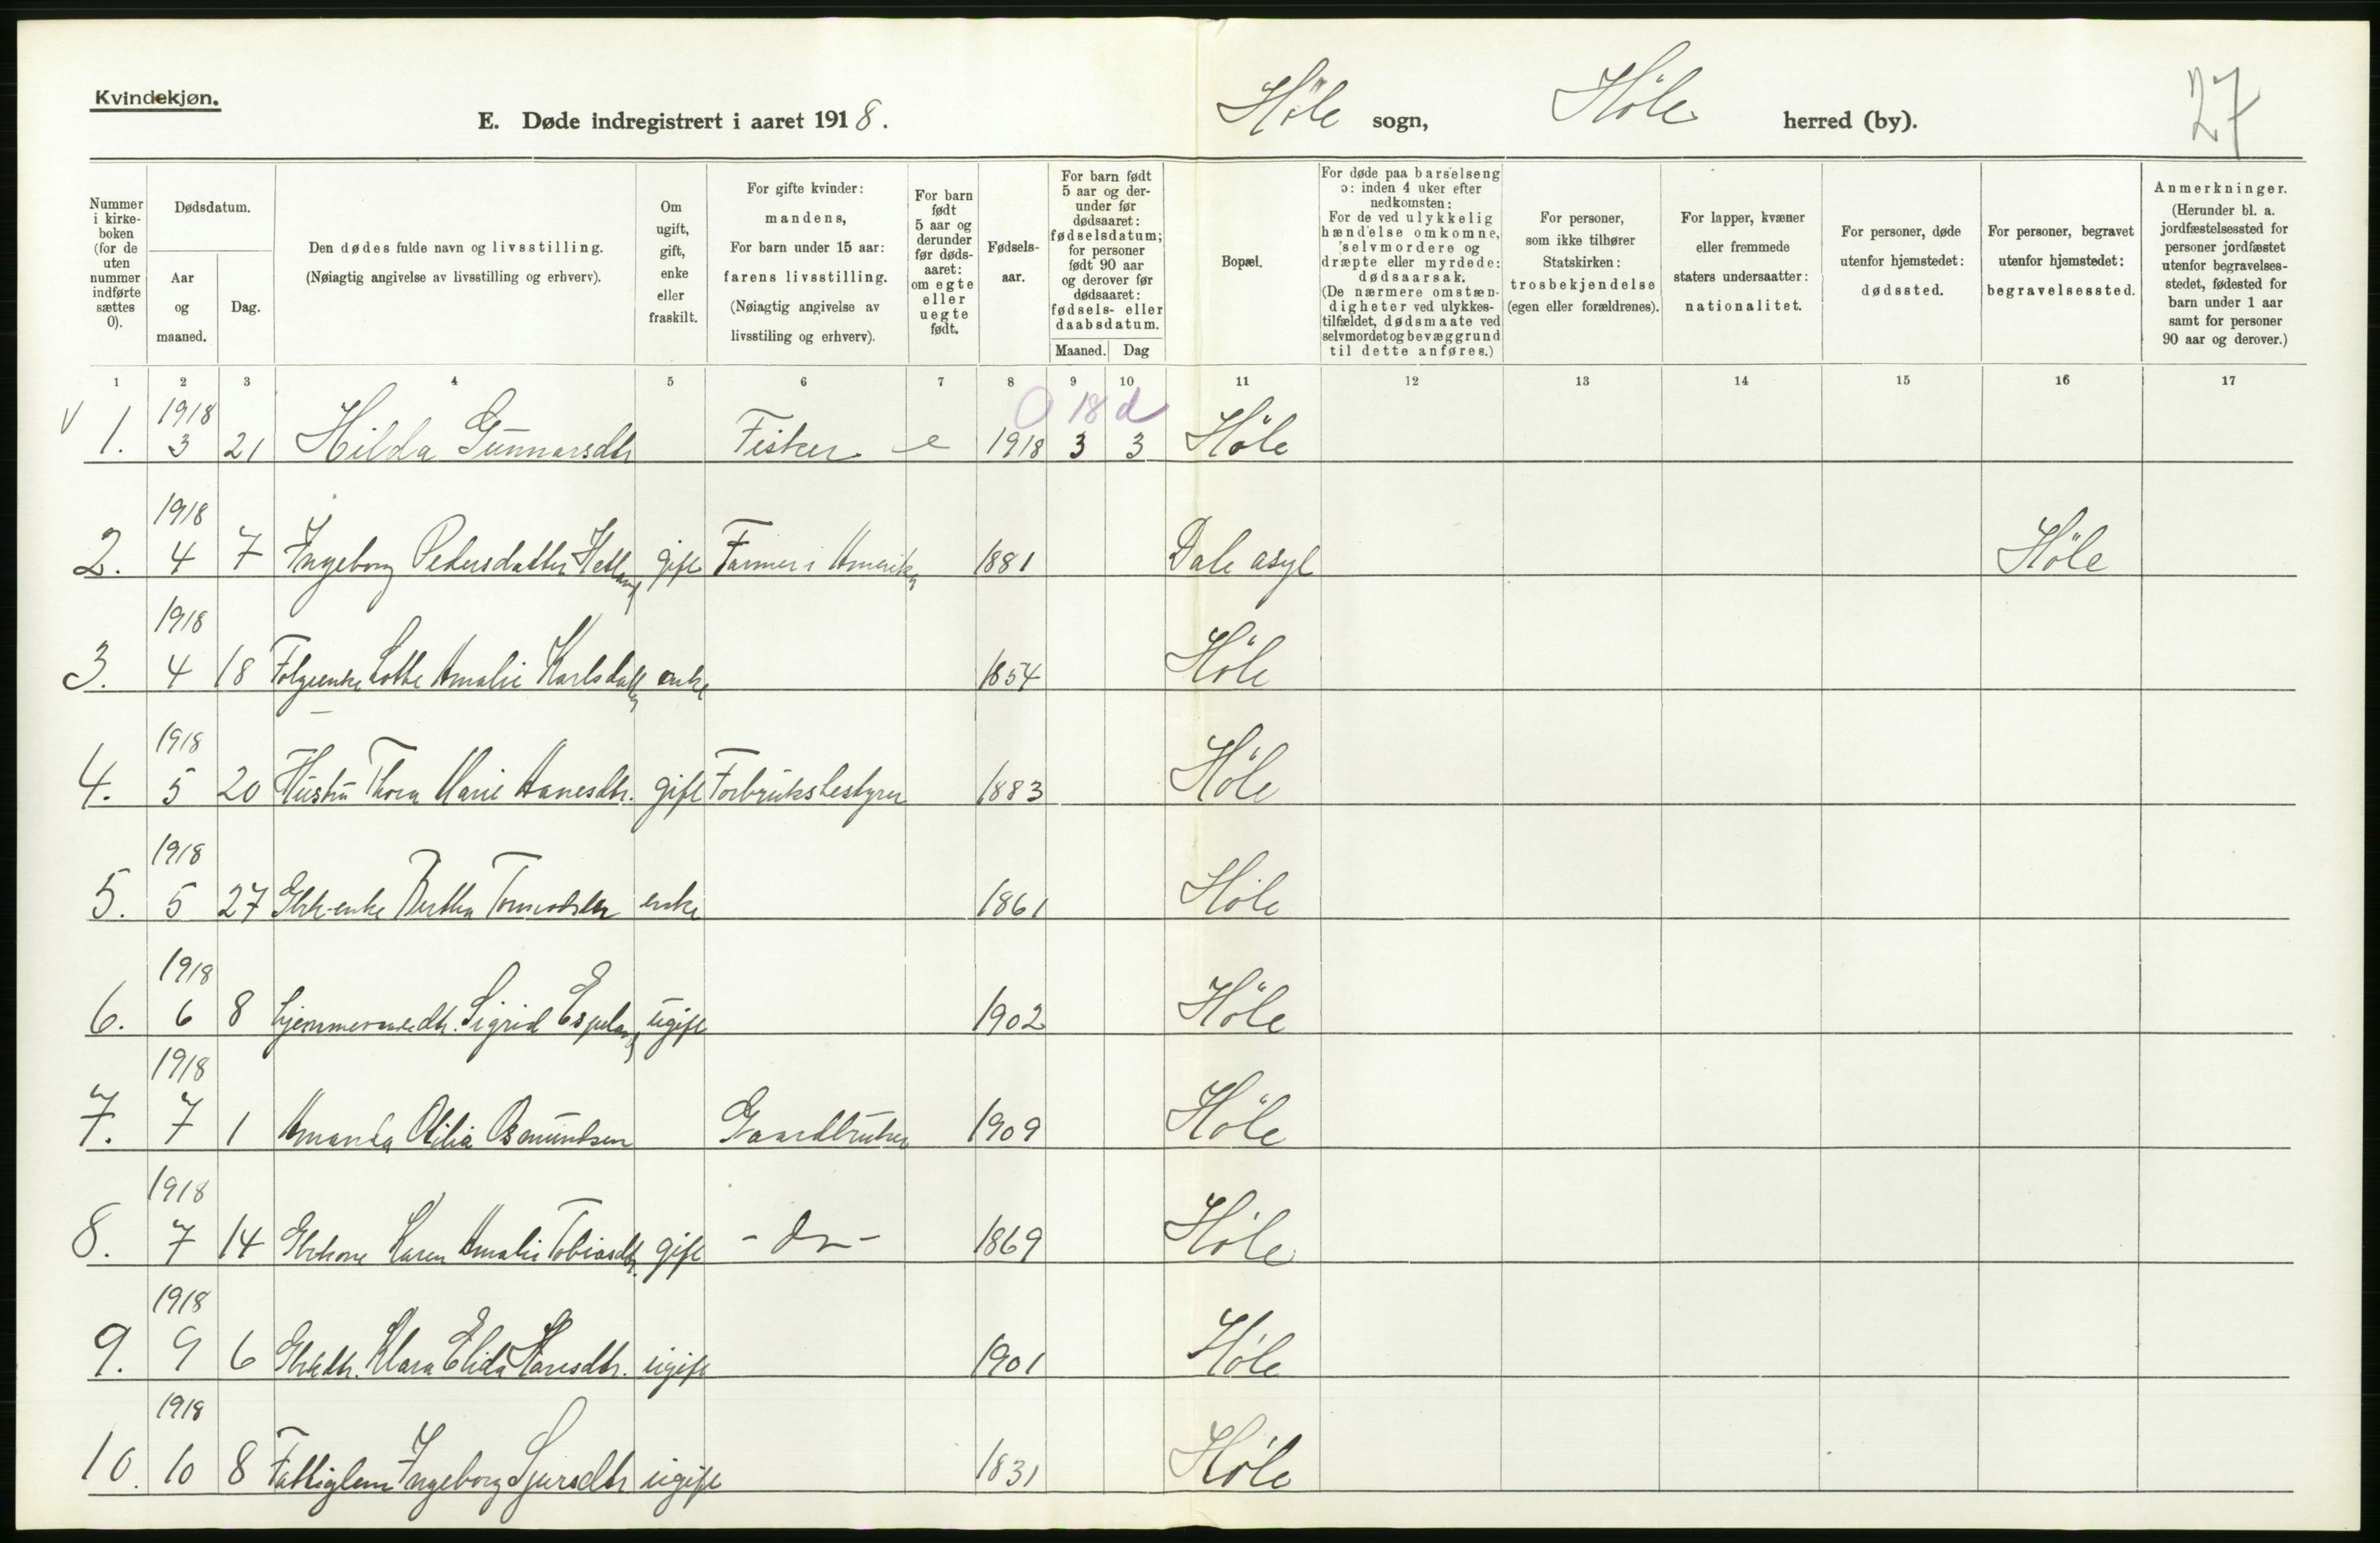 Kvindekjøn.
E. Døde indregistrert i aaret 1918.
Höle sogn, Höle herred (by).
27
Nummer i kirke-boken (for de uten nummer indførte sættes 0).
Dødsdatum.
Aar og maaned.
Dag.
Den dødes fulde navn og livsstilling.
(Nøiagtig angivelse av livsstilling og erhverv).
Om ugift, gift, enke eller fraskilt.
For gifte kvinder: mandens,
For barn under 15 aar: farens livsstilling.
(Nøiagtig angivelse av livsstiling og erhverv).
For barn født 5 aar og derunder før døds-aaret: om egte eller uegte født.
Fødsels-aar.
For barn født 5 aar og der-under før dødsaaret: fødselsdatum; for personer født 90 aar og derover før dødsaaret: fødsels- eller daabsdatum.
Maaned. Dag
Bopæl.
For døde paa barselseng ɔ: inden 4 uker efter nedkomsten:
For de ved ulykkelig hændelse omkomne, selvmordere og dræpte eller myrdede: dødsaarsak.
(De nærmere omstæn-digheter ved ulykkes-tilfældet, dødsmaate ved selvmordet og bevæggrund til dette anføres.)
For personer, som ikke tilhører Statskirken: trosbekjendelse (egen eller forældrenes).
For lapper, kvæner eller fremmede staters undersaatter: nationalitet.
For personer, døde utenfor hjemstedet: dødssted.
For personer, begravet utenfor hjemstedet: begravelsessted.
Anmerkninger.
(Herunder bl. a. jordfæstelsessted for personer jordfæstet utenfor begravelses-stedet, fødested for barn under 1 aar samt for personer 90 aar og derover.)
1 2 3 4 5 6 7 8 9 10 11 12 13 14 15 16 17
1918 0 18 d
V 1. 3 21 Hilda Gunnarsdtr Fisker e 1918 3 3 Höle
1918
2. 4 7 Ingeborg Pedersdatter Hetland gift Farmer i Amerika 1881 Dale asyl Höle
1918
3. 4 18 Folgeenke Lotte Amalie Karlsdatter enke 1854 Höle
1918
4. 5 20 Hustru Thora Marie Hansdtr. gift Forbruksbestyrer 1883 Höle
1918
5. 5 27 Gbr-enke Bertha enke 1861 Höle
1918
6. 6 8 hjemmev. dtr. Sigrid Espeland ugift 1902 Höle
1918
7. 7 1 Amanda Otilia Osmundsen Gaardbruker 1909 Höle
1918
8. 7 14 Gbrkone Karen Amalie Tobiasdtr. gift - do - 1869 Höle
1918
9. 9 6 Gbrdtr. Klara Elida Hansdtr. ugift 1901 Höle
1918
10. 10 8 Fattiglem Ingeborg Sjursdtr ugift 1831 Höle